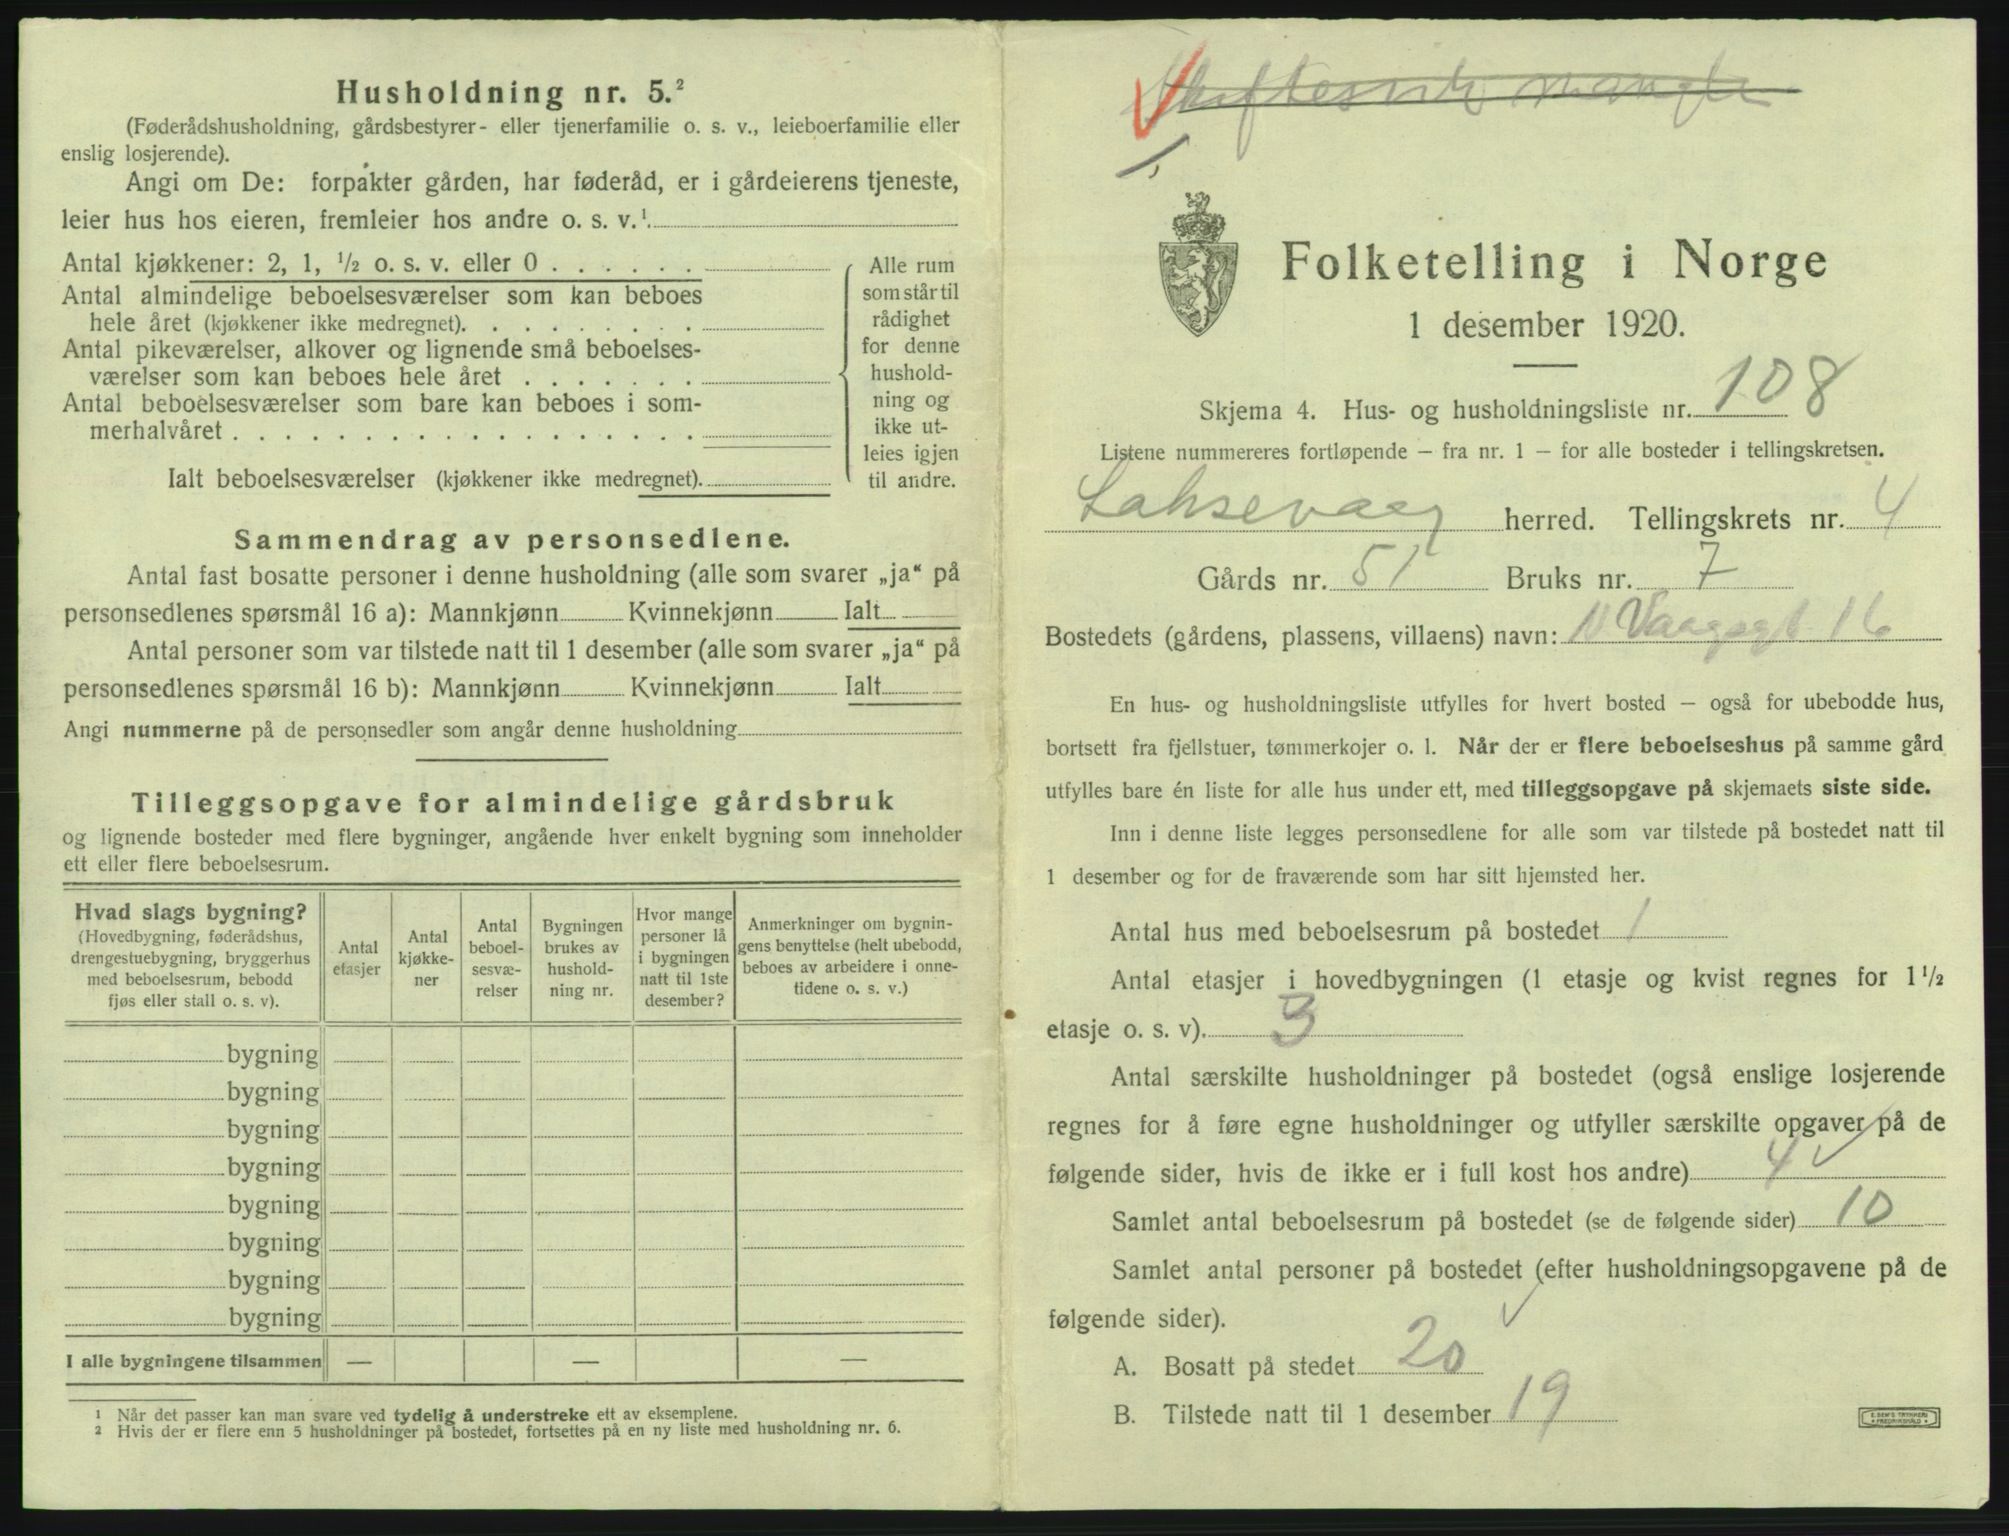 Husholdning nr. 5.²
(Føderådshusholdning, gårdsbestyrer- eller tjenerfamilie o. s. v., leieboerfamilie eller
enslig losjerende).
Angi om De: forpakter gården, har føderåd, er i gårdeierens tjeneste,
leier hus hos eieren, fremleier hos andre o. s. v.¹.
Antal kjøkkener: 2, 1, ½ o. s. v. eller 0 . . . . . .
Antal almindelige beboelsesværelser som kan beboes
hele året (kjøkkener ikke medregnet). . . . . . . . .
Antal pikeværelser, alkover og lignende små beboelses-
værelser som kan beboes hele året . . . . . . .
Antal beboelsesværelser som bare kan beboes i som-
merhalvåret . . . . . . . . . . . . . . . . . .
Alle rum
som står til
rådighet
for denne
hushold-
ning og
ikke ut-
leies igjen
til andre.
Ialt beboelsesværelser (kjøkkener ikke medregnet).
Sammendrag av personsedlene.
Antal fast bosatte personer i denne husholdning (alle som svarer „ja“ på
personsedlenes spørsmål 16 a): Mannkjønn Kvinnekjønn Ialt
Antal personer som var tilstede natt til 1 desember (alle som svarer „ja“ på
personsedlenes spørsmål 16 b): Mannkjønn Kvinnekjønn Ialt
Angi nummerne på de personsedler som angår denne husholdning
Tilleggsopgave for almindelige gårdsbruk
og lignende bosteder med flere bygninger, angående hver enkelt bygning som inneholder
ett eller flere beboelsesrum.
Hvad slags bygning?
(Hovedbygning, føderådshus,
drengestuebygning, bryggerhus
med beboelsesrum, bebodd
fjøs eller stall o. s. v).
Antal
etasjer
Antal
kjøkke-
ner
Antal
beboel-
sesvæ-
relser
Bygningen
brukes av
hushold-
ning nr.
Hvor mange
personer lå
i bygningen
natt til 1ste
desember?
Anmerkninger om bygnin-
gens benyttelse (helt ubebodd,
beboes av arbeidere i onne-
tidene o. s. v.)
bygning
bygning
bygning
bygning
bygning
bygning
bygning
bygning
I alle bygningene tilsammen — — —
¹ Når det passer kan man svare ved tydelig å understreke ett av eksemplene.
² Hvis der er flere enn 5 husholdninger på bostedet, fortsettes på en ny liste med husholdning nr. 6.
Folketelling i Norge
1 desember 1920.
Skjema 4. Hus- og husholdningsliste nr. 108
Listene nummereres fortløpende – fra nr. 1 – for alle bosteder i tellingskretsen.
Laksevaag herred. Tellingskrets nr. 4
Gårds nr. 51 Bruks nr. 7
Bostedets (gårdens, plassens, villaens) navn: N Vaagsgt 16
En hus- og husholdningsliste utfylles for hvert bosted – også for ubebodde hus,
bortsett fra fjellstuer, tømmerkojer o. l. Når der er flere beboelseshus på samme gård
utfylles bare én liste for alle hus under ett, med tilleggsopgave på skjemaets siste side.
Inn i denne liste legges personsedlene for alle som var tilstede på bostedet natt til
1 desember og for de fraværende som har sitt hjemsted her.
Antal hus med beboelsesrum på bostedet 1
Antal etasjer i hovedbygningen (1 etasje og kvist regnes for 1½
etasje o. s. v). 3
Antal særskilte husholdninger på bostedet (også enslige losjerende
regnes for å føre egne husholdninger og utfyller særskilte opgaver på de
følgende sider, hvis de ikke er i full kost hos andre) 4
Samlet antal beboelsesrum på bostedet (se de følgende sider) 10
Samlet antal personer på bostedet (efter husholdningsopgavene på de
følgende sider).
A. Bosatt på stedet 20
B. Tilstede natt til 1 desember 19